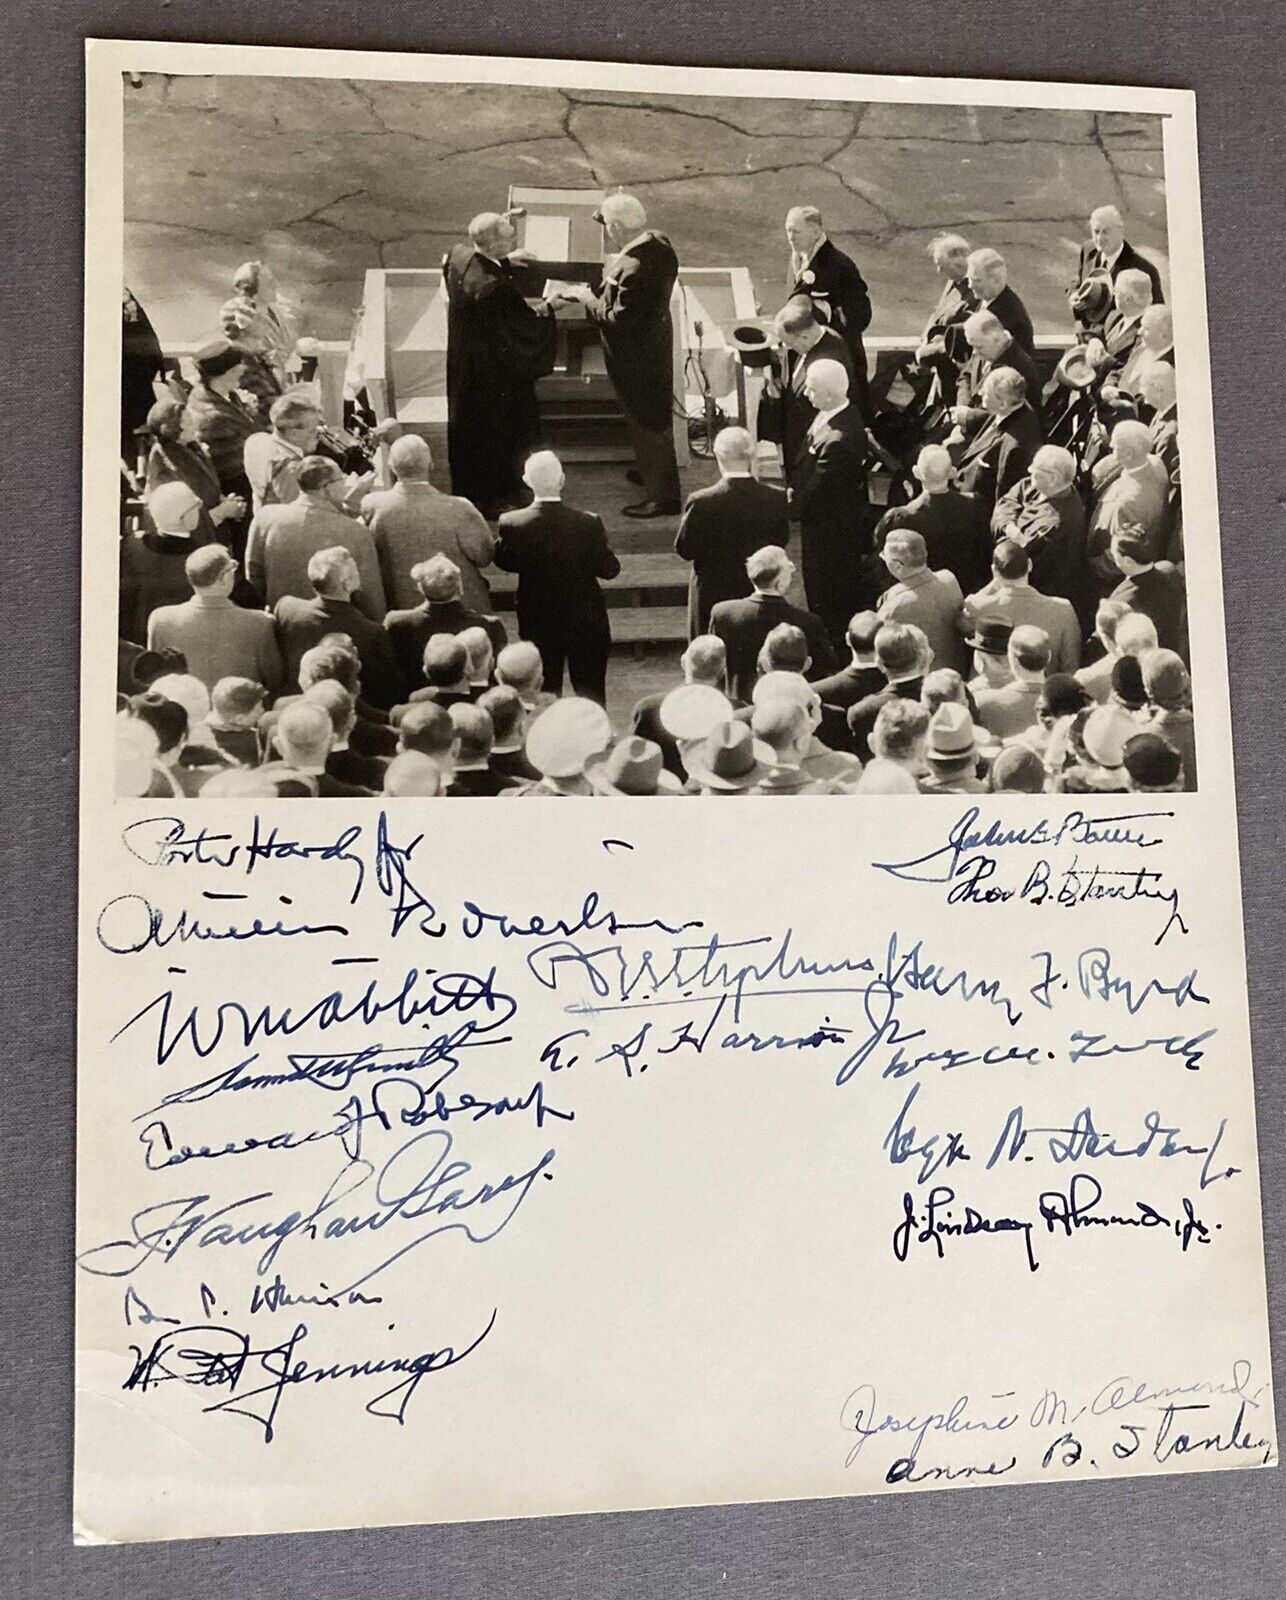 Porter Hardy Jr
John S. Battle
Thos B. Stanley
A Willis Robertson
A.E.S. Stephens
Harry F. Byrd
W M Abbitt
A. S. Harrison Jr
Wm. M. Tuck
Howard W Smith
Edward J Robeson Jr
Colgate W. Darden Jr.
J. Vaughan Gary.
J. Lindsay Almond, Jr.
W. Pat Jennings
Josephine M. Almond
Anne B. Stanley